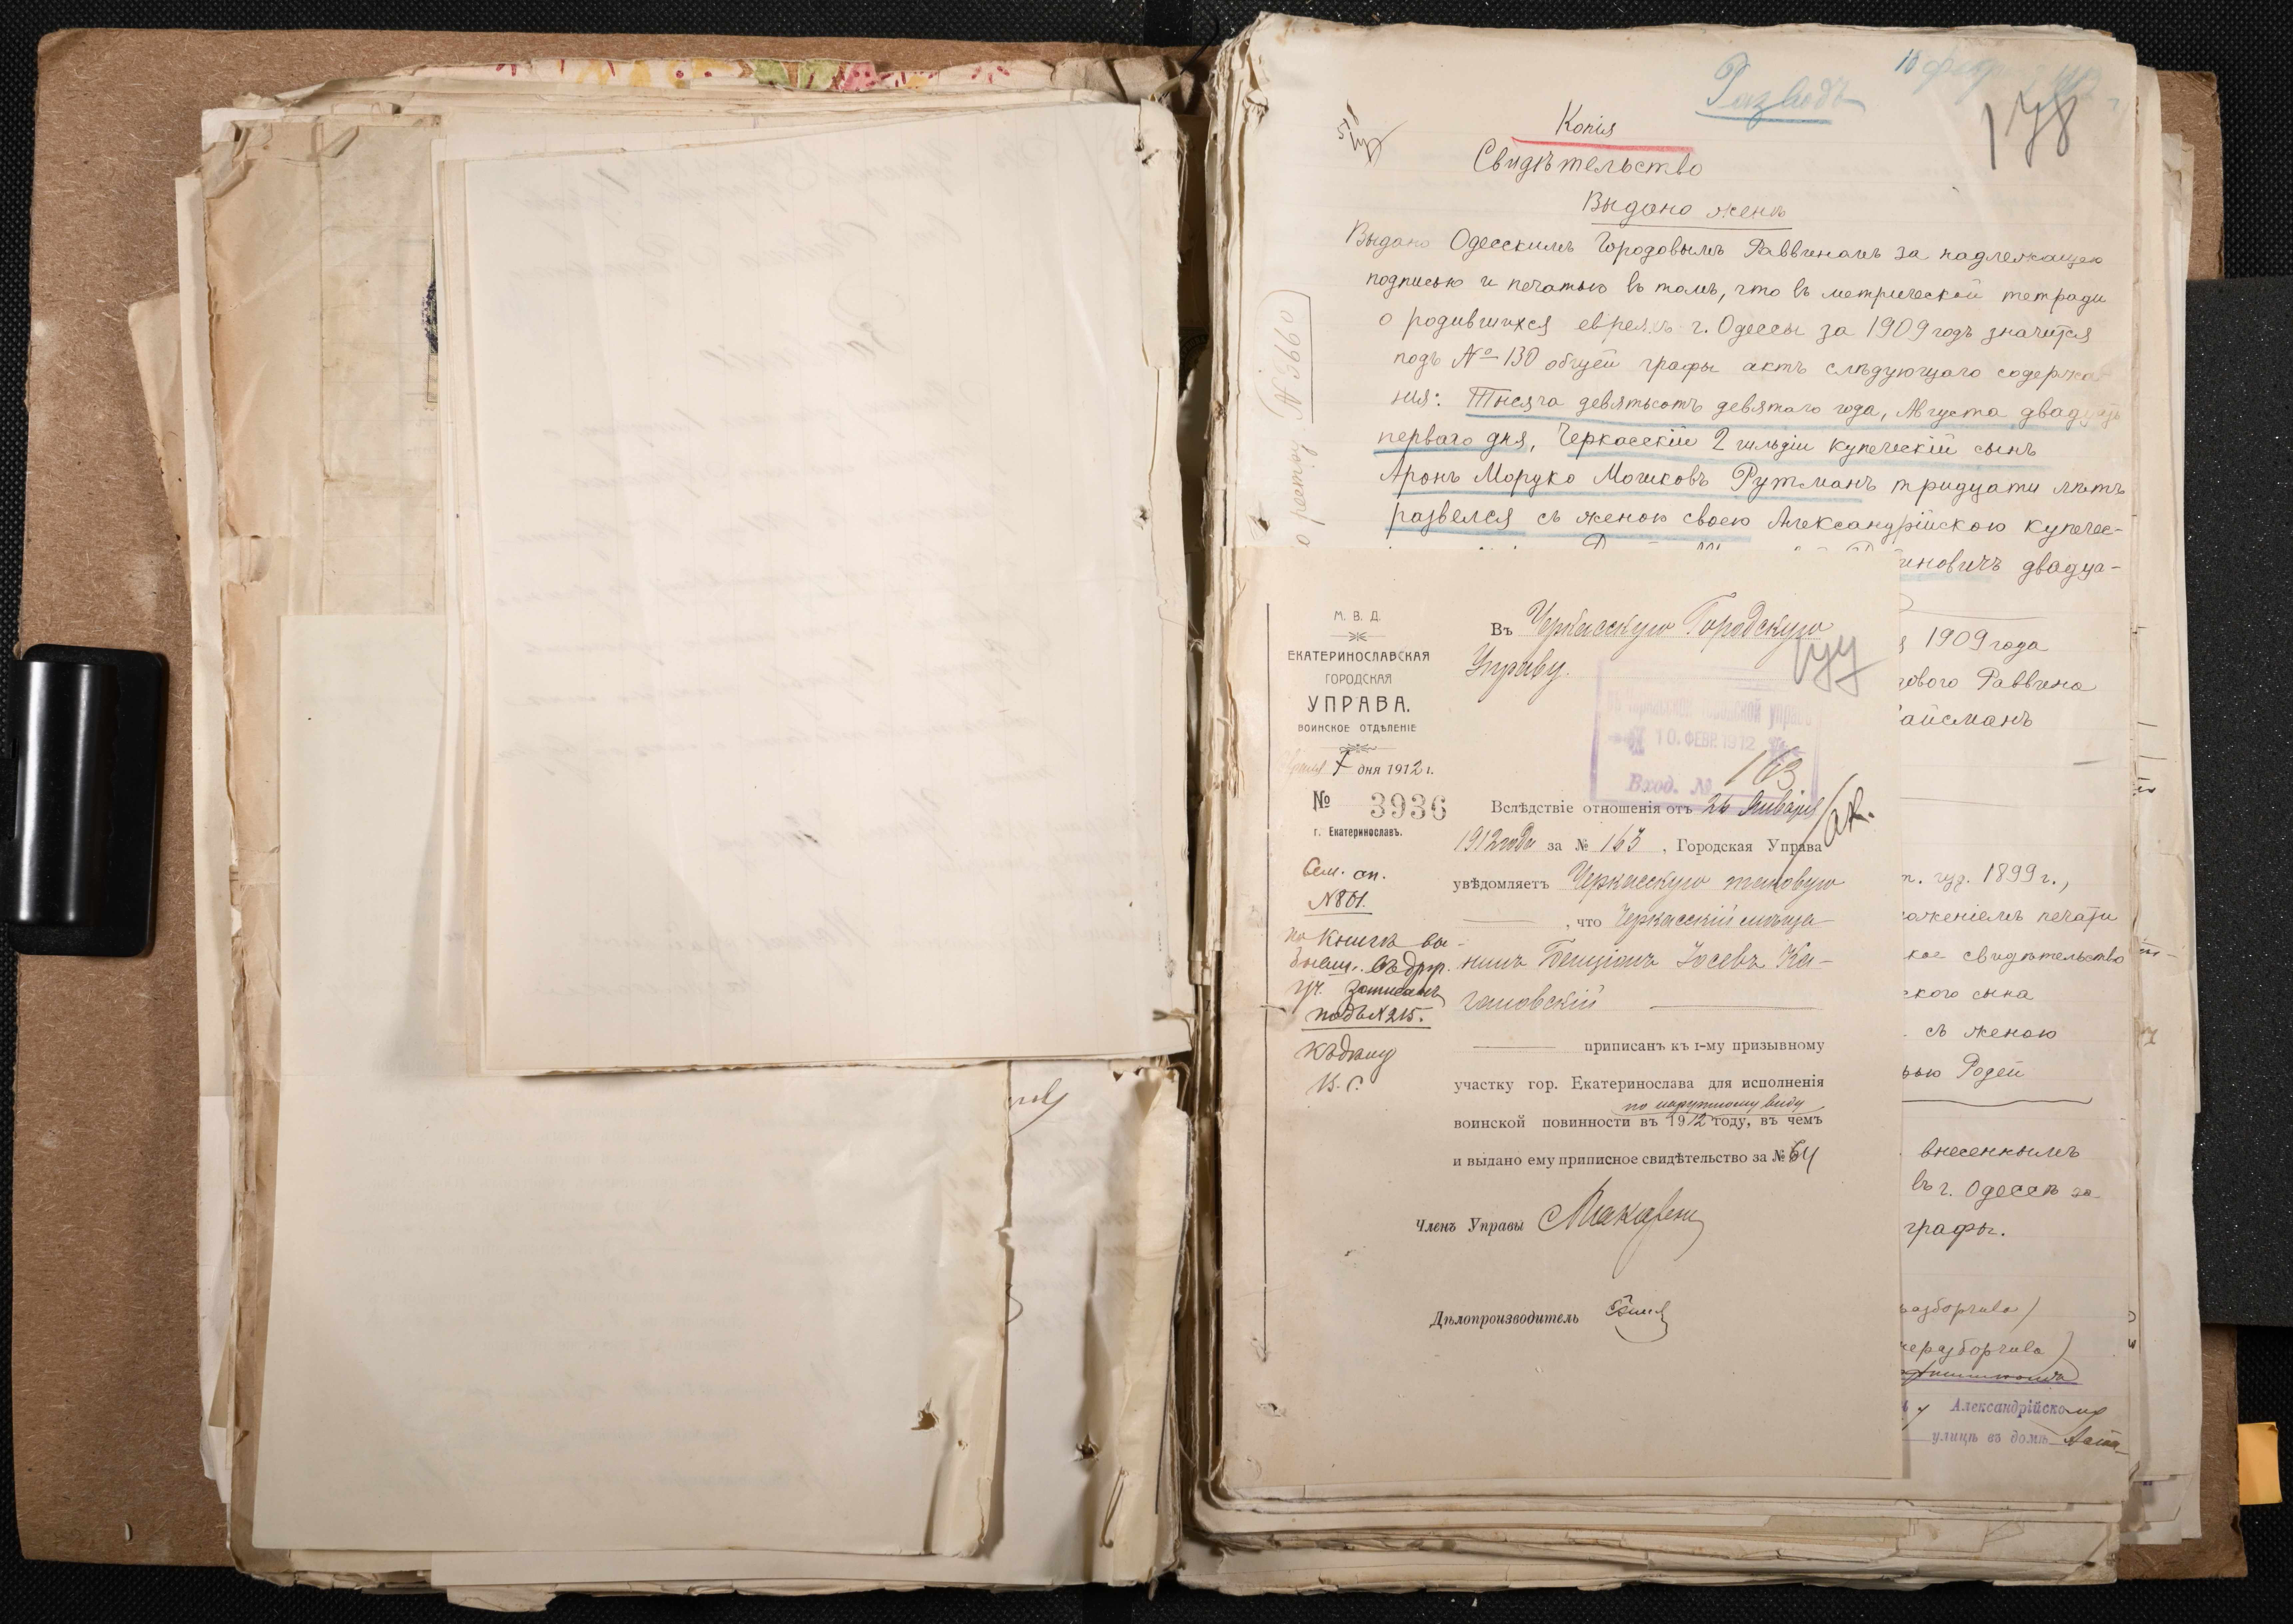 Разводъ
178
Копія
Свидѣтельство
Выдано женѣ
Выдано Одесскимъ Городовымъ Раввиномъ за надлежащею
подписью и печатью въ томъ, что въ метрической тетради
о родившихся евреяхъ г. Одессы за 1909 годъ значится
подъ № 130 общей графы актъ слѣдующаго содержа
нія: Тысяча девятьсотъ девятаго года, Августа двадцать
перваго дня, Черкасскій 2 гильдіи купеческій сынъ
Аронъ Мордко Мошковъ Рутманъ тридцати лѣтъ
развелся съ женою своею Александрійскою купечес-
иновичъ двадца-
1909 года
ового Раввина
айсманъ
1899 г.,
оженіемъ печати
кое свидѣтельство
ского сына
съ женою
ью Родей
внесеннымъ
въ г. Одессѣ за
графы.
азборчива)
неразборчива)
Александрійскому
улицѣ въ домѣ
о реестру № 3660
М. В. Д.
ЕКАТЕРИНОСЛАВСКАЯ
ГОРОДСКАЯ
УПРАВА.
ВОИНСКОЕ ОТДѢЛЕНІЕ
7 дня 1912 г.
№ 3936
г. Екатеринославъ.
Сем. сп.
№ 861.
по книгѣ вы-
бывш. въ др.
уч. записанъ
подъ № 215.
Къ дѣлу
В. С.
Въ Черкасскую Городскую
Управу.
177
10. ФЕВР. 1912
Вход. № 163
Вслѣдствіе отношенія отъ 26 Января
1912 года за № 163, Городская Управа
увѣдомляетъ Черкасскую таковую
, что Черкасскій мѣща-
нинъ Бенціонъ Іосевъ Ка-
гановскій
приписанъ къ 1-му призывному
участку гор. Екатеринослава для исполненія
по наружному виду
воинской повинности въ 1912 году, въ чемъ
и выдано ему приписное свидѣтельство за № 64
Членъ Управы
Дѣлопроизводитель